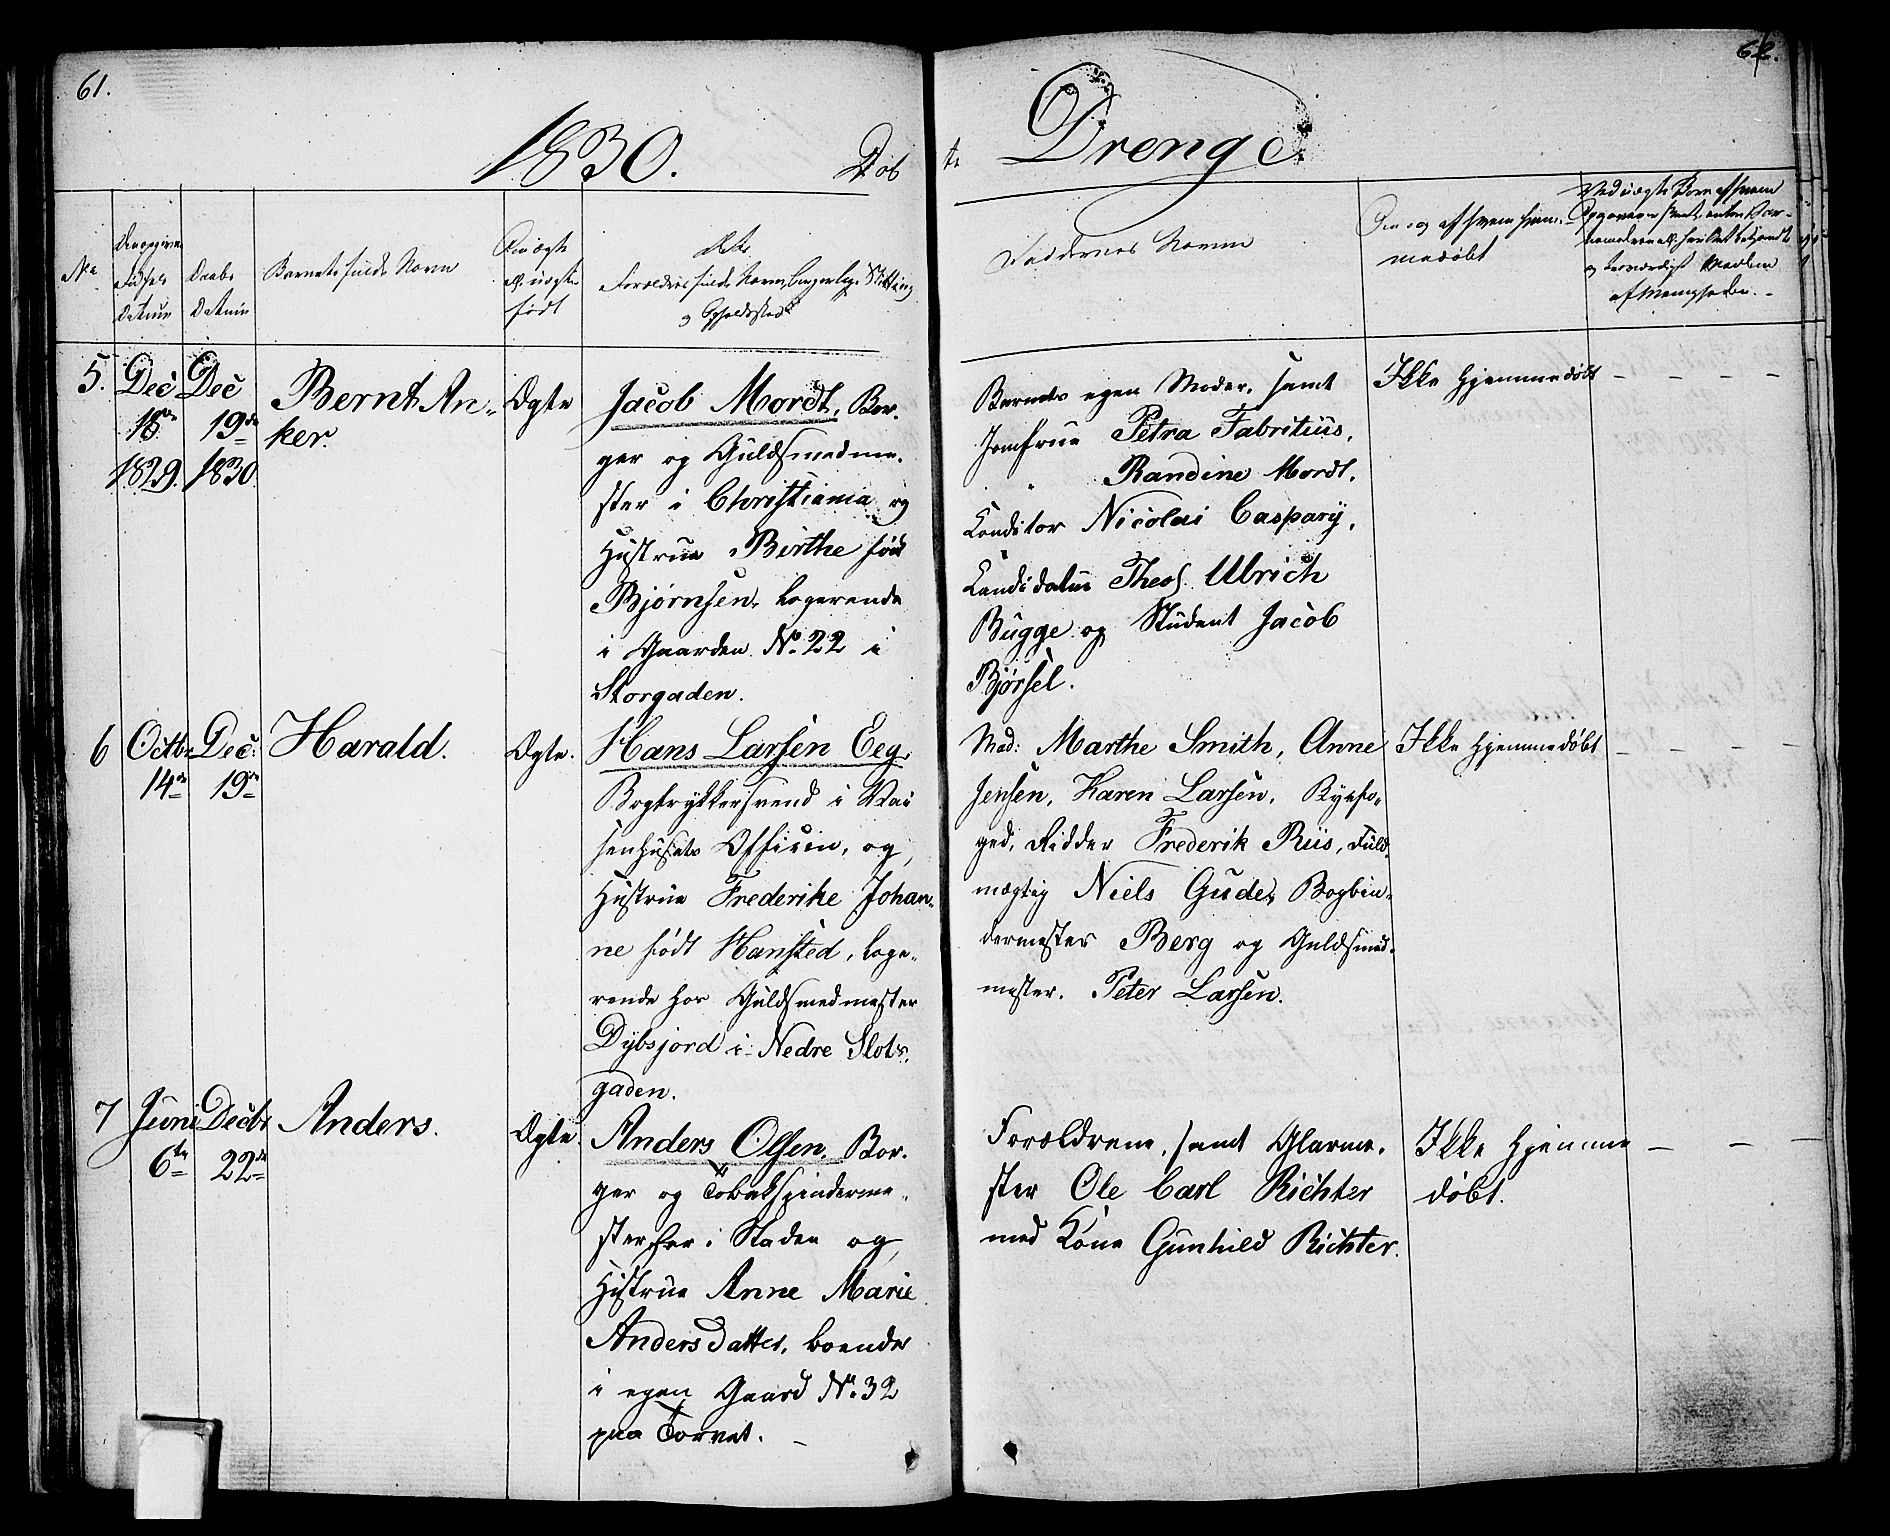 61.
62.
1830.
Døb
te
Drenge.
No
Den opgivne
Fødsels
Datum
Daabs
Datum
Barnets fulde Navn
Om ægte
ell. uægte
født
Dets
Forældres fulde Navn, borgerlige Stilling
og Opholdssted
Faddernes Navne
Om og af hvem hjem-
medøbt
Ved uægte Børn af hvem
5.
Dec
18de
1829.
Dec
19de
1830.
Bernt An-
ker.
Ægte
Jacob Mordt, Bor-
ger og Guldsmedme-
ster i Christiania og
Hustrue Birthe født
Bjørnsen, logerende
i Gaarden No. 22 i
Storgaden.
Barnets egen Moder, samt
Jomfrue Petra Fabritius,
" Randine Mordt,
Conditor Nicolai Caspary,
Candidatus Theol. Ulrich
Bugge og Student Jacob
Bjørsel.
Ikke Hjemmedøbt
6
Octbr
14de
Dec:
19de
Harald.
Ægte.
Hans Larsen Eeg,
Bogtrykkersvend i Wai
senhusets Officin, og
Hustrue Frederike Johan-
ne født Hansted, loge-
rende hos Guldsmedmester
Dybsjord i Nedre Slots-
gaden.
Mad: Marthe Smith, Anne
Jensen, Karen Larsen, Byefo-
ged, Ridder Frederik Riis, Fuld-
mægtig Niels Gude, Bogbin-
dermester Berg og Guldsmed-
mester. Peter Larsen.
Ikke Hjemmedøbt
7
Juni
6te
Decbr
22de
Anders.
Ægte
Anders Olsen, Bor-
ger og Tobakspinderme-
ster her i Staden og
Hustrue Anne Marie
Andersdatter, boende
i egen Gaard No. 32
paa Torvet.
Forældrene, samt Glarme-
ster Ole Carl Richter
med Kone Gunhild Richter.
Ikke Hjemme
døbt.